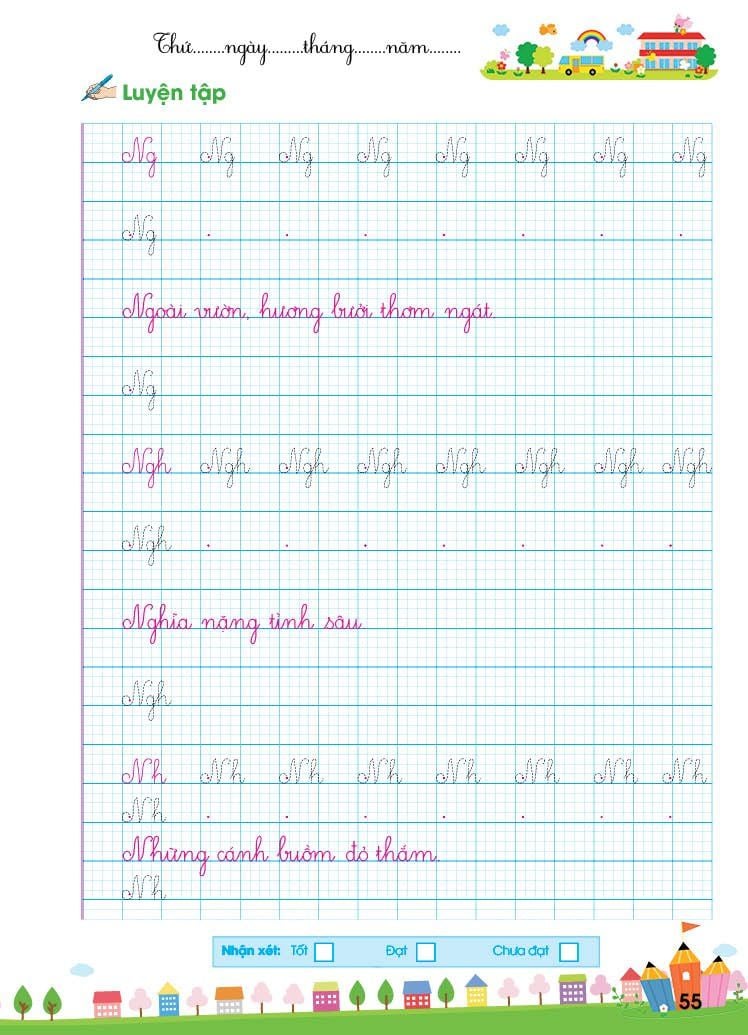 Thứ........ngày........tháng.......năm........
Luyện tập
Ng Ng Ng Ng Ng Ng Ng Ng
Ng . . . . . . .
Ngoài vườn, hương bưởi thơm ngát.
Ng
Ngh Ngh Ngh Ngh Ngh Ngh Ngh Ngh
Ngh . . . . . . .
Nghĩa nặng tình sâu
Ngh
Nh Nh Nh Nh Nh Nh Nh Nh
Nh . . . . . . .
Những cánh buồm đỏ thắm.
Nh
Nhận xét: Tốt Đạt Chưa đạt
55